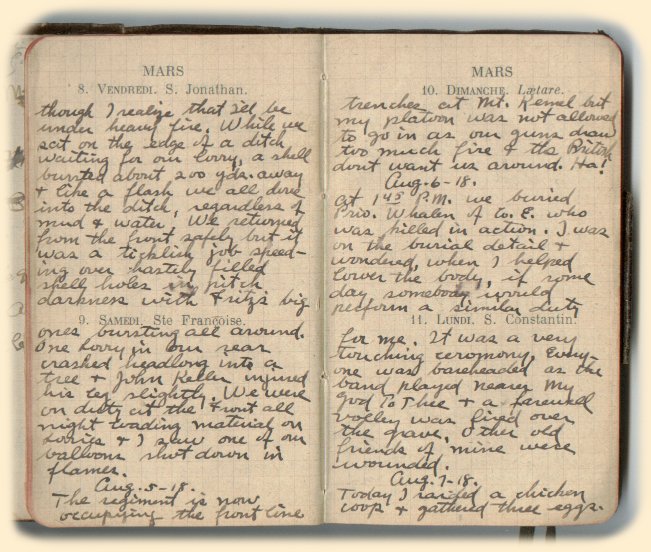 MARS
8. VENDREDI. S. Jonathan.
though I realize that I'll be
under heavy fire. While we
sat on the edge of a ditch
waiting for our lorry, a shell
bursted about 200 yds. away
& like a flash we all dove
into the ditch, regardless of
mud & water. We returned
from the front safely but it
was a ticklish job speed-
ing over hastily filled
shell holes in pitch
darkness with Fritz's big
9. SAMEDI. Ste Françoise.
ones bursting all around.
One lorry in our rear
crashed headlong into a
tree & John Keller injured
his leg slightly. We were
on duty at the front all
night loading material on
lorries & I saw one of our
balloons shot down in
flames.
Aug. 5-18.
The regiment is now
occupying the front line
MARS
10. DIMANCHE. Lætare.
trenches at Mt. Kemel but
my platoon was not allowed
to go in as our guns draw
too much fire & the British
dont want us around. Ha!
Aug. 6-18.
At 1 45 P.M. we buried
Priv. Whalen of Co. E. who
was killed in action. I was
on the burial detail &
wondered, when I helped
lower the body, if some
day somebody would
perform a similar duty
11. LUNDI. S. Constantin.
for me. It was a very
touching ceromony. Every-
one was bareheaded as the
band played nearer My
God To Thee & a farewell
volley was fired over
the grave. Other old
friends of mine were
wounded.
Aug. 7-18.
Today I raided a chicken
coop & gathered three eggs.